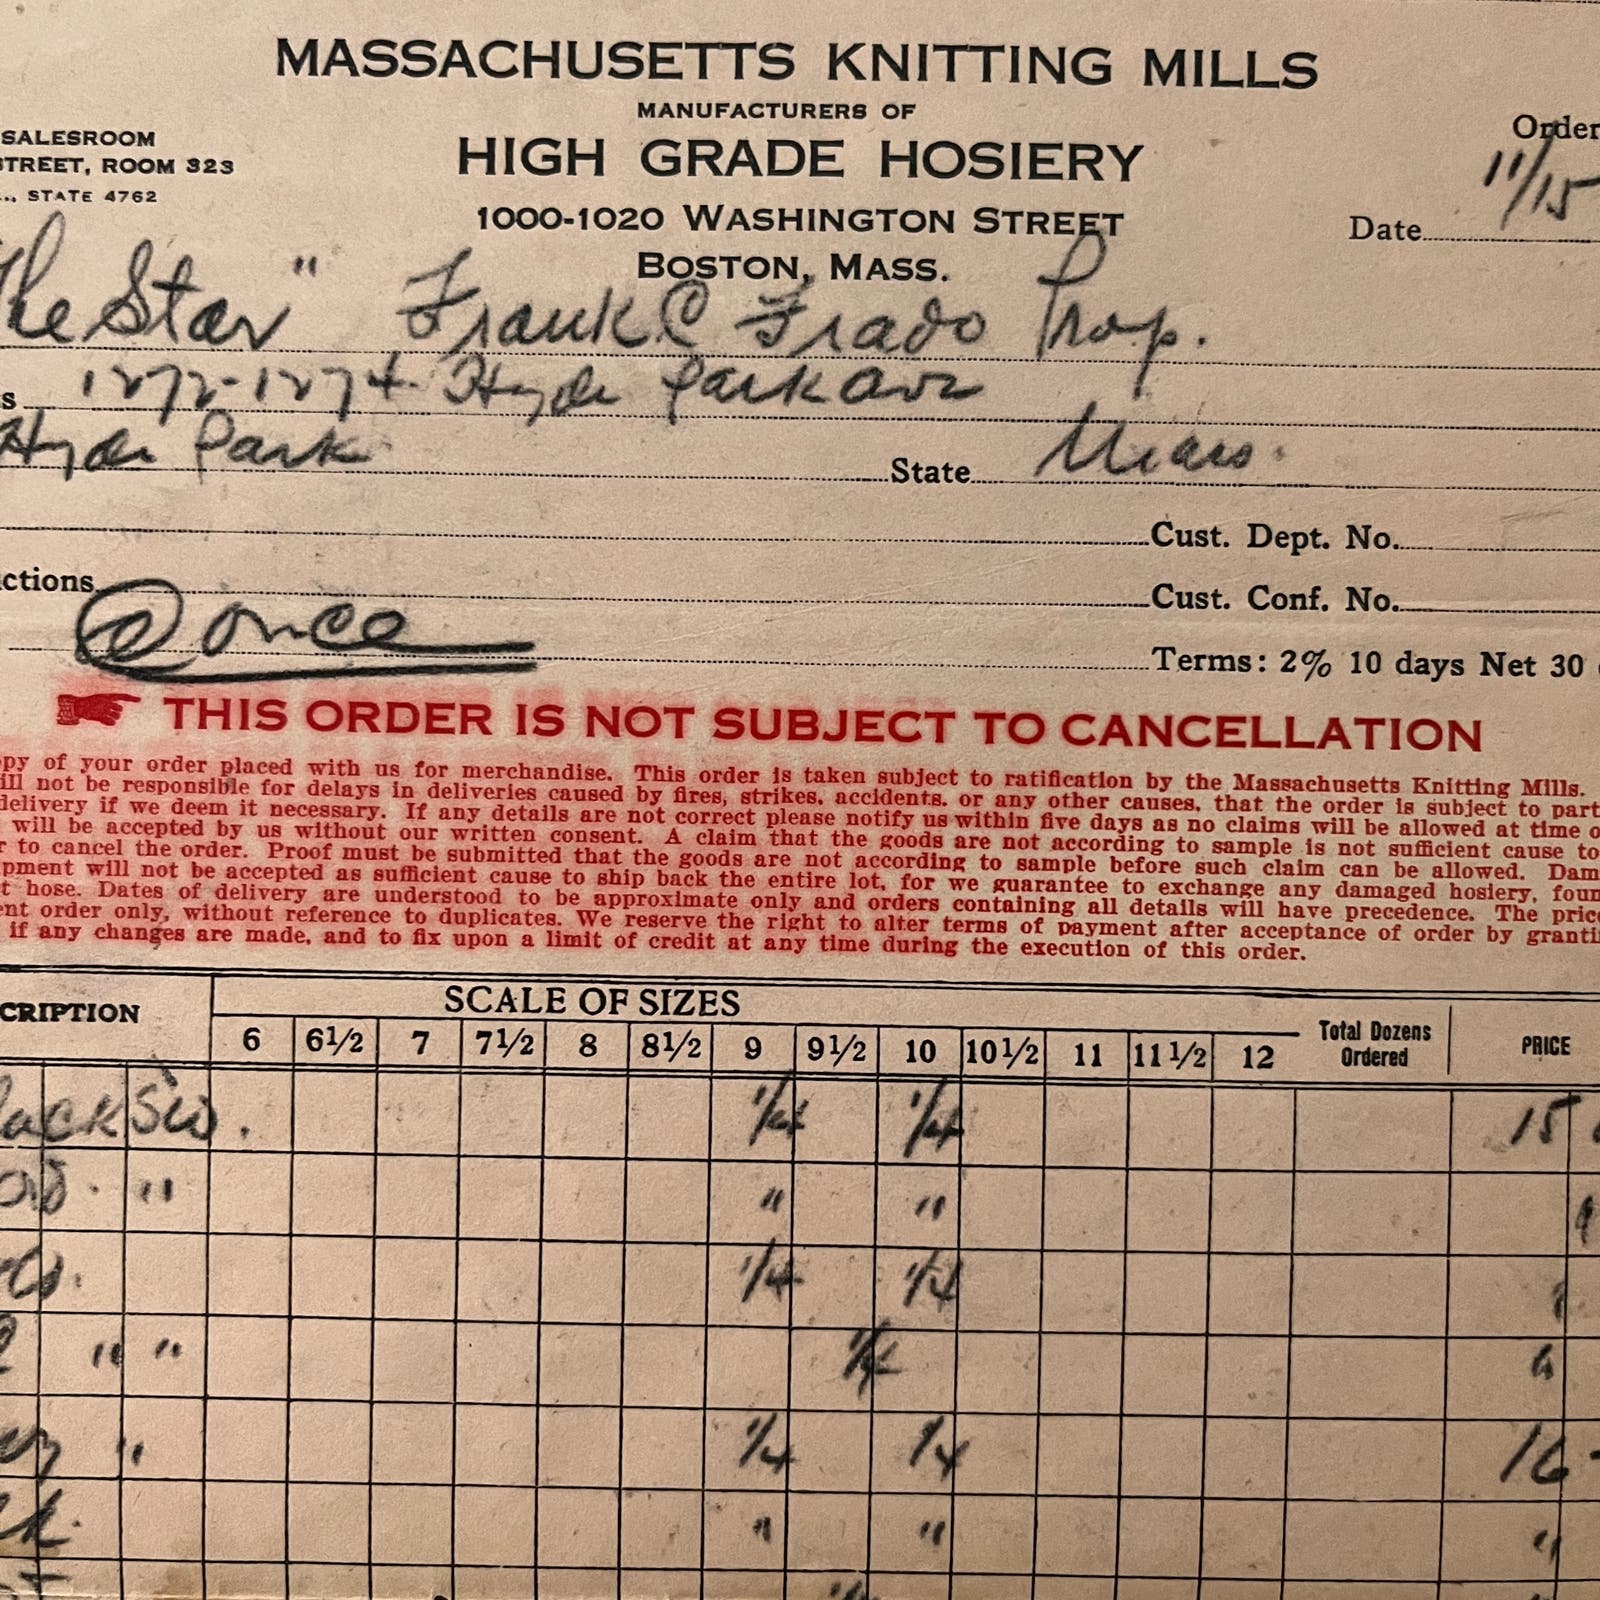 MASSACHUSETTS KNITTING MILLS
MANUFACTURERS OF
HIGH GRADE HOSIERY
1000-1020 WASHINGTON STREET
BOSTON, MASS.
SALESROOM
STREET, ROOM 323
STATE 4762
Order
11/15
Date
The Star" Frank C Frado Prop.
s 1272-1274 Hyde Park Ave
Hyde Park State Mass.
Cust. Dept. No.
ctions @ once Cust. Conf. No.
Terms: 2% 10 days Net 30
THIS ORDER IS NOT SUBJECT TO CANCELLATION
py of your order placed with us for merchandise. This order is taken subject to ratification by the Massachusetts Knitting Mills.
ill not be responsible for delays in deliveries caused by fires, strikes, accidents, or any other causes, that the order is subject to part
delivery if we deem it necessary. If any details are not correct please notify us within five days as no claims will be allowed at time o
will be accepted by us without our written consent. A claim that the goods are not according to sample is not sufficient cause to
r to cancel the order. Proof must be submitted that the goods are not according to sample before such claim can be allowed. Dam
pment will not be accepted as sufficient cause to ship back the entire lot, for we guarantee to exchange any damaged hosiery, foun
t hose. Dates of delivery are understood to be approximate only and orders containing all details will have precedence. The pric
ent order only, without reference to duplicates. We reserve the right to alter terms of payment after acceptance of order by granti
if any changes are made, and to fix upon a limit of credit at any time during the execution of this order.
CRIPTION SCALE OF SIZES Total Dozens Ordered PRICE
6 6½ 7 7½ 8 8½ 9 9½ 10 10½ 11 11½ 12
lack 1/4 1/4 15
" " "
1/4 1/4
" " 1/4 6
" 1/4 1/4 16
" " "